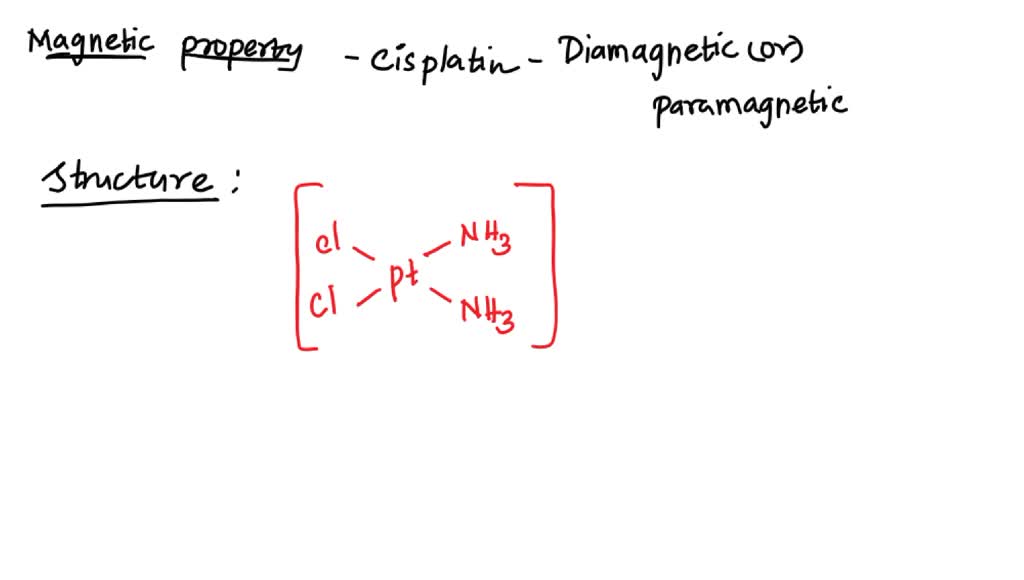 Magnetic property - Cisplatin - Diamagnetic (or)
paramagnetic
Structure :
Cl NH3
Pt
Cl NH3